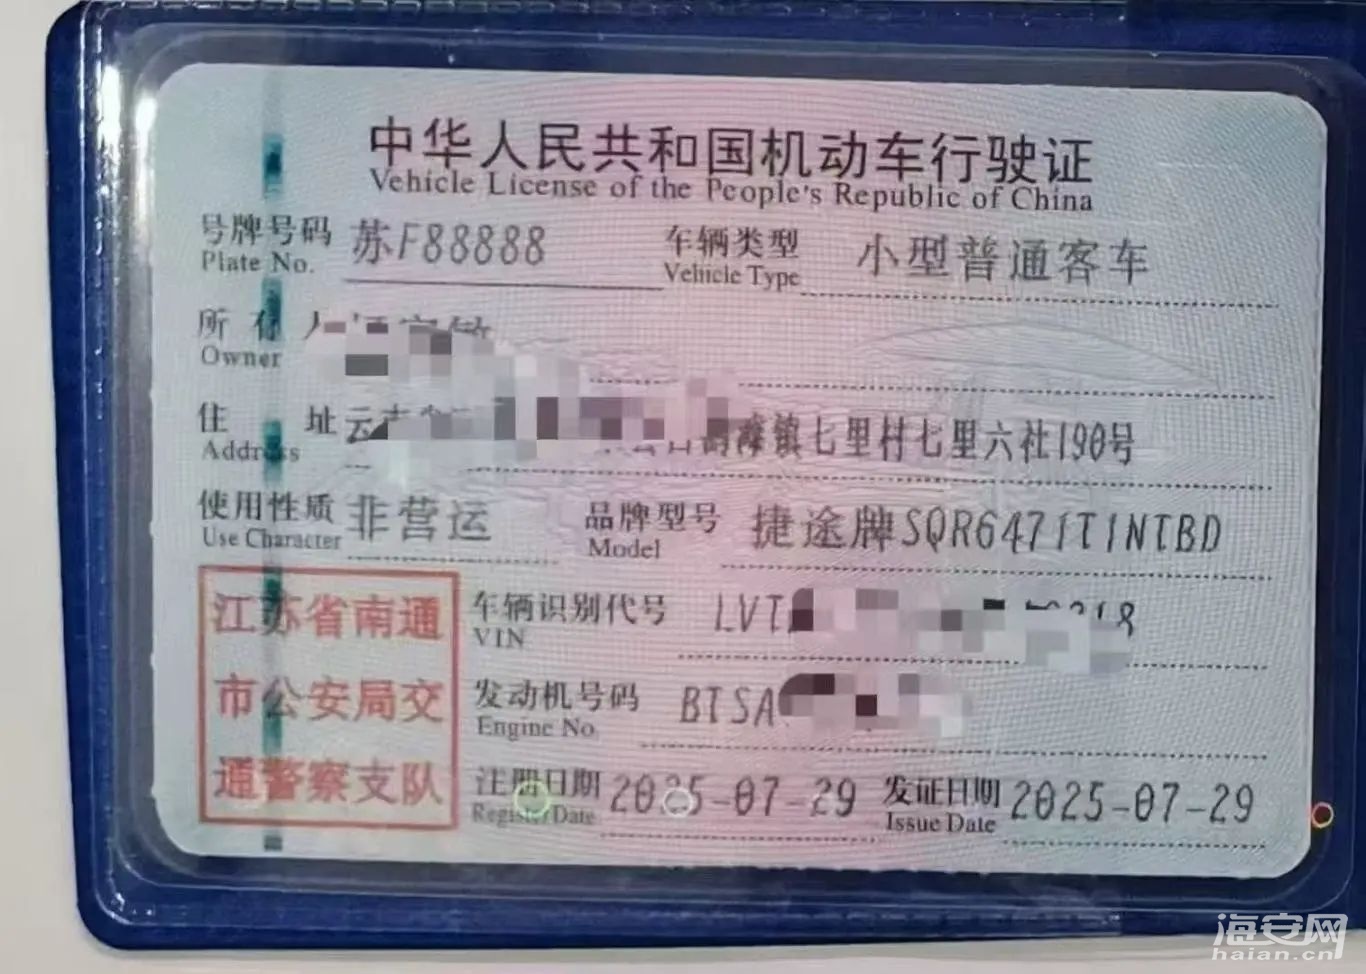 中华人民共和国机动车行驶证
Vehicle License of the People's Republic of China
号牌号码 苏F88888 车辆类型 小型普通客车
Plate No. Vehicle Type
所有人
Owner
住址 云 镇七里村七里六社190号
Address
使用性质 非营运 品牌型号 捷途牌SQR6471T1NTBD
Use Character Model
江苏省南通
市公安局交
通警察支队
车辆识别代号 LVT
VIN
发动机号码 BTSA
Engine No.
注册日期 2025-07-29 发证日期 2025-07-29
Register Date Issue Date
海安网
haian.cn